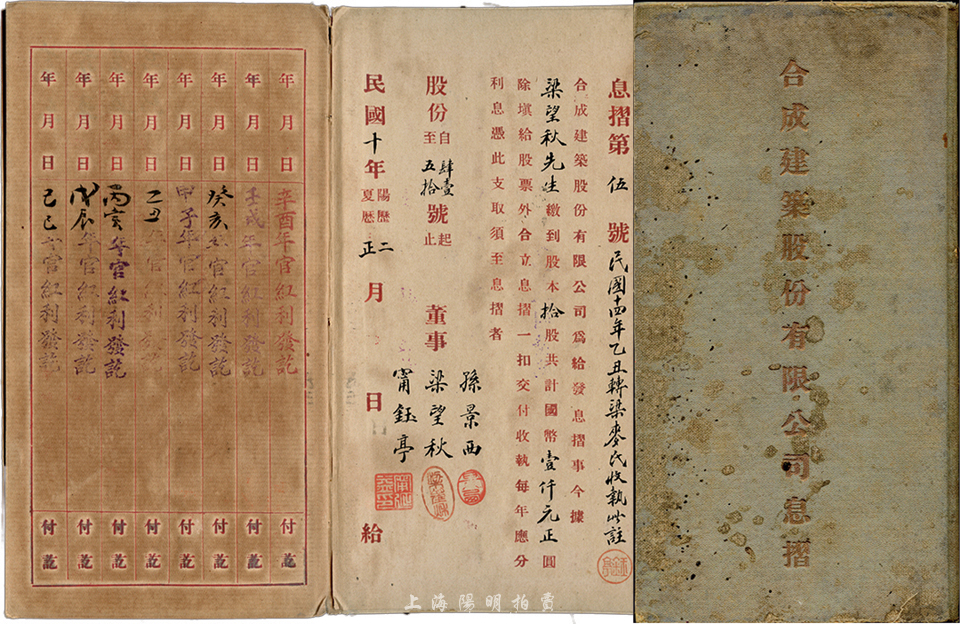 合成建築股份有限公司息摺
息摺第伍號民國十四年乙丑轉梁麥氏收執此註
合成建築股份有限公司爲給發息摺事今據
梁望秋先生繳到股本拾股共計國幣壹仟元正圓
除塡給股票外合立息摺一扣交付收執每年應分
利息憑此支取須至息摺者
股份自肆壹號起至五拾號止 董事 孫景西 梁望秋 甯鈺亭
民國十年陽歷二夏歷正月 日給
年月日辛酉年官紅利發訖付訖
年月日壬戌年官紅利發訖付訖
年月日癸亥年官紅利發訖付訖
年月日甲子年官紅利發訖付訖
年月日乙丑年官紅利發訖付訖
年月日丙寅年官紅利發訖付訖
年月日戊辰年官紅利發訖付訖
年月日己巳年官紅利發訖付訖
上海陽明拍賣